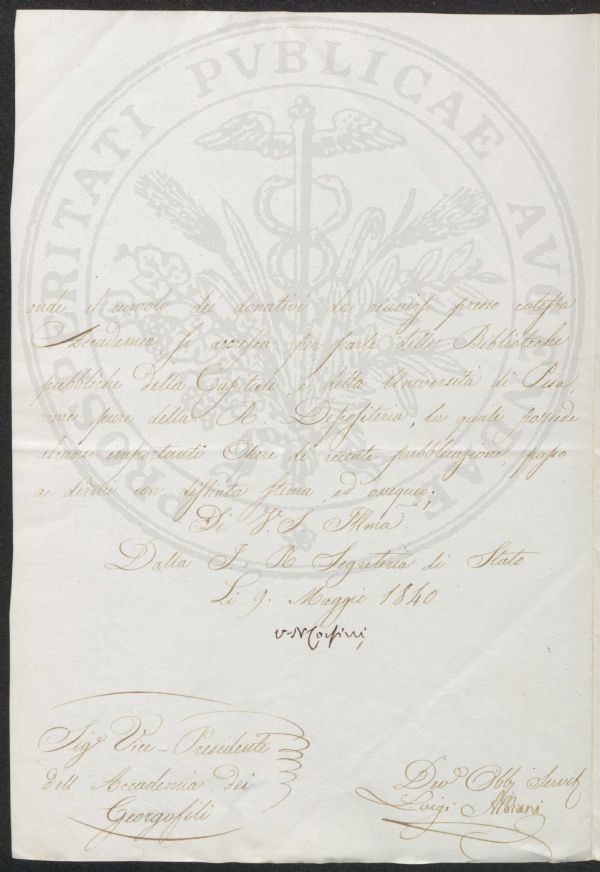 PROSPERITATI PVBLICAE AVGENDAE
onde il cumolo dei donativi da riunirsi presso cotesta
Accademia si accresca per parte delle Biblioteche
pubbliche della Capitale, e della Università di Pisa,
come pure della R. Depositeria, la quale possiede
alcune importanti Opere di recente pubblicazione, passo
a dirmi con distinta stima ed ossequio;
Di V. S. Illma
Dalla I. R. Segreteria di Stato
Li 9. Maggio 1840.
V. N. Corsini
Sigr Vice-Presidente
dell'Accademia dei
Georgofili
Devo Obb Servit
Luigi